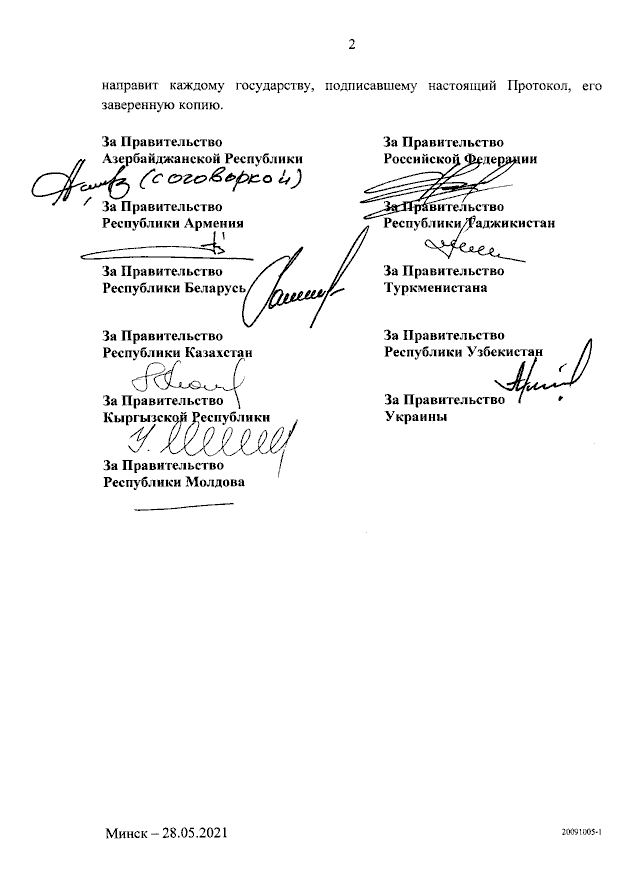 2
направит каждому государству, подписавшему настоящий Протокол, его
заверенную копию.
За Правительство
Азербайджанской Республики
(с оговоркой)
За Правительство
Республики Армения
За Правительство
Республики Беларусь
За Правительство
Республики Казахстан
За Правительство
Кыргызской Республики
За Правительство
Республики Молдова
За Правительство
Российской Федерации
За Правительство
Республики Таджикистан
За Правительство
Туркменистана
За Правительство
Республики Узбекистан
За Правительство
Украины
Минск – 28.05.2021
20091005-1